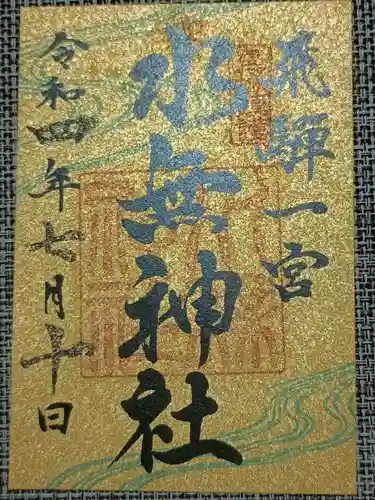 飛騨一宮
水無神社
令和四年七月十日